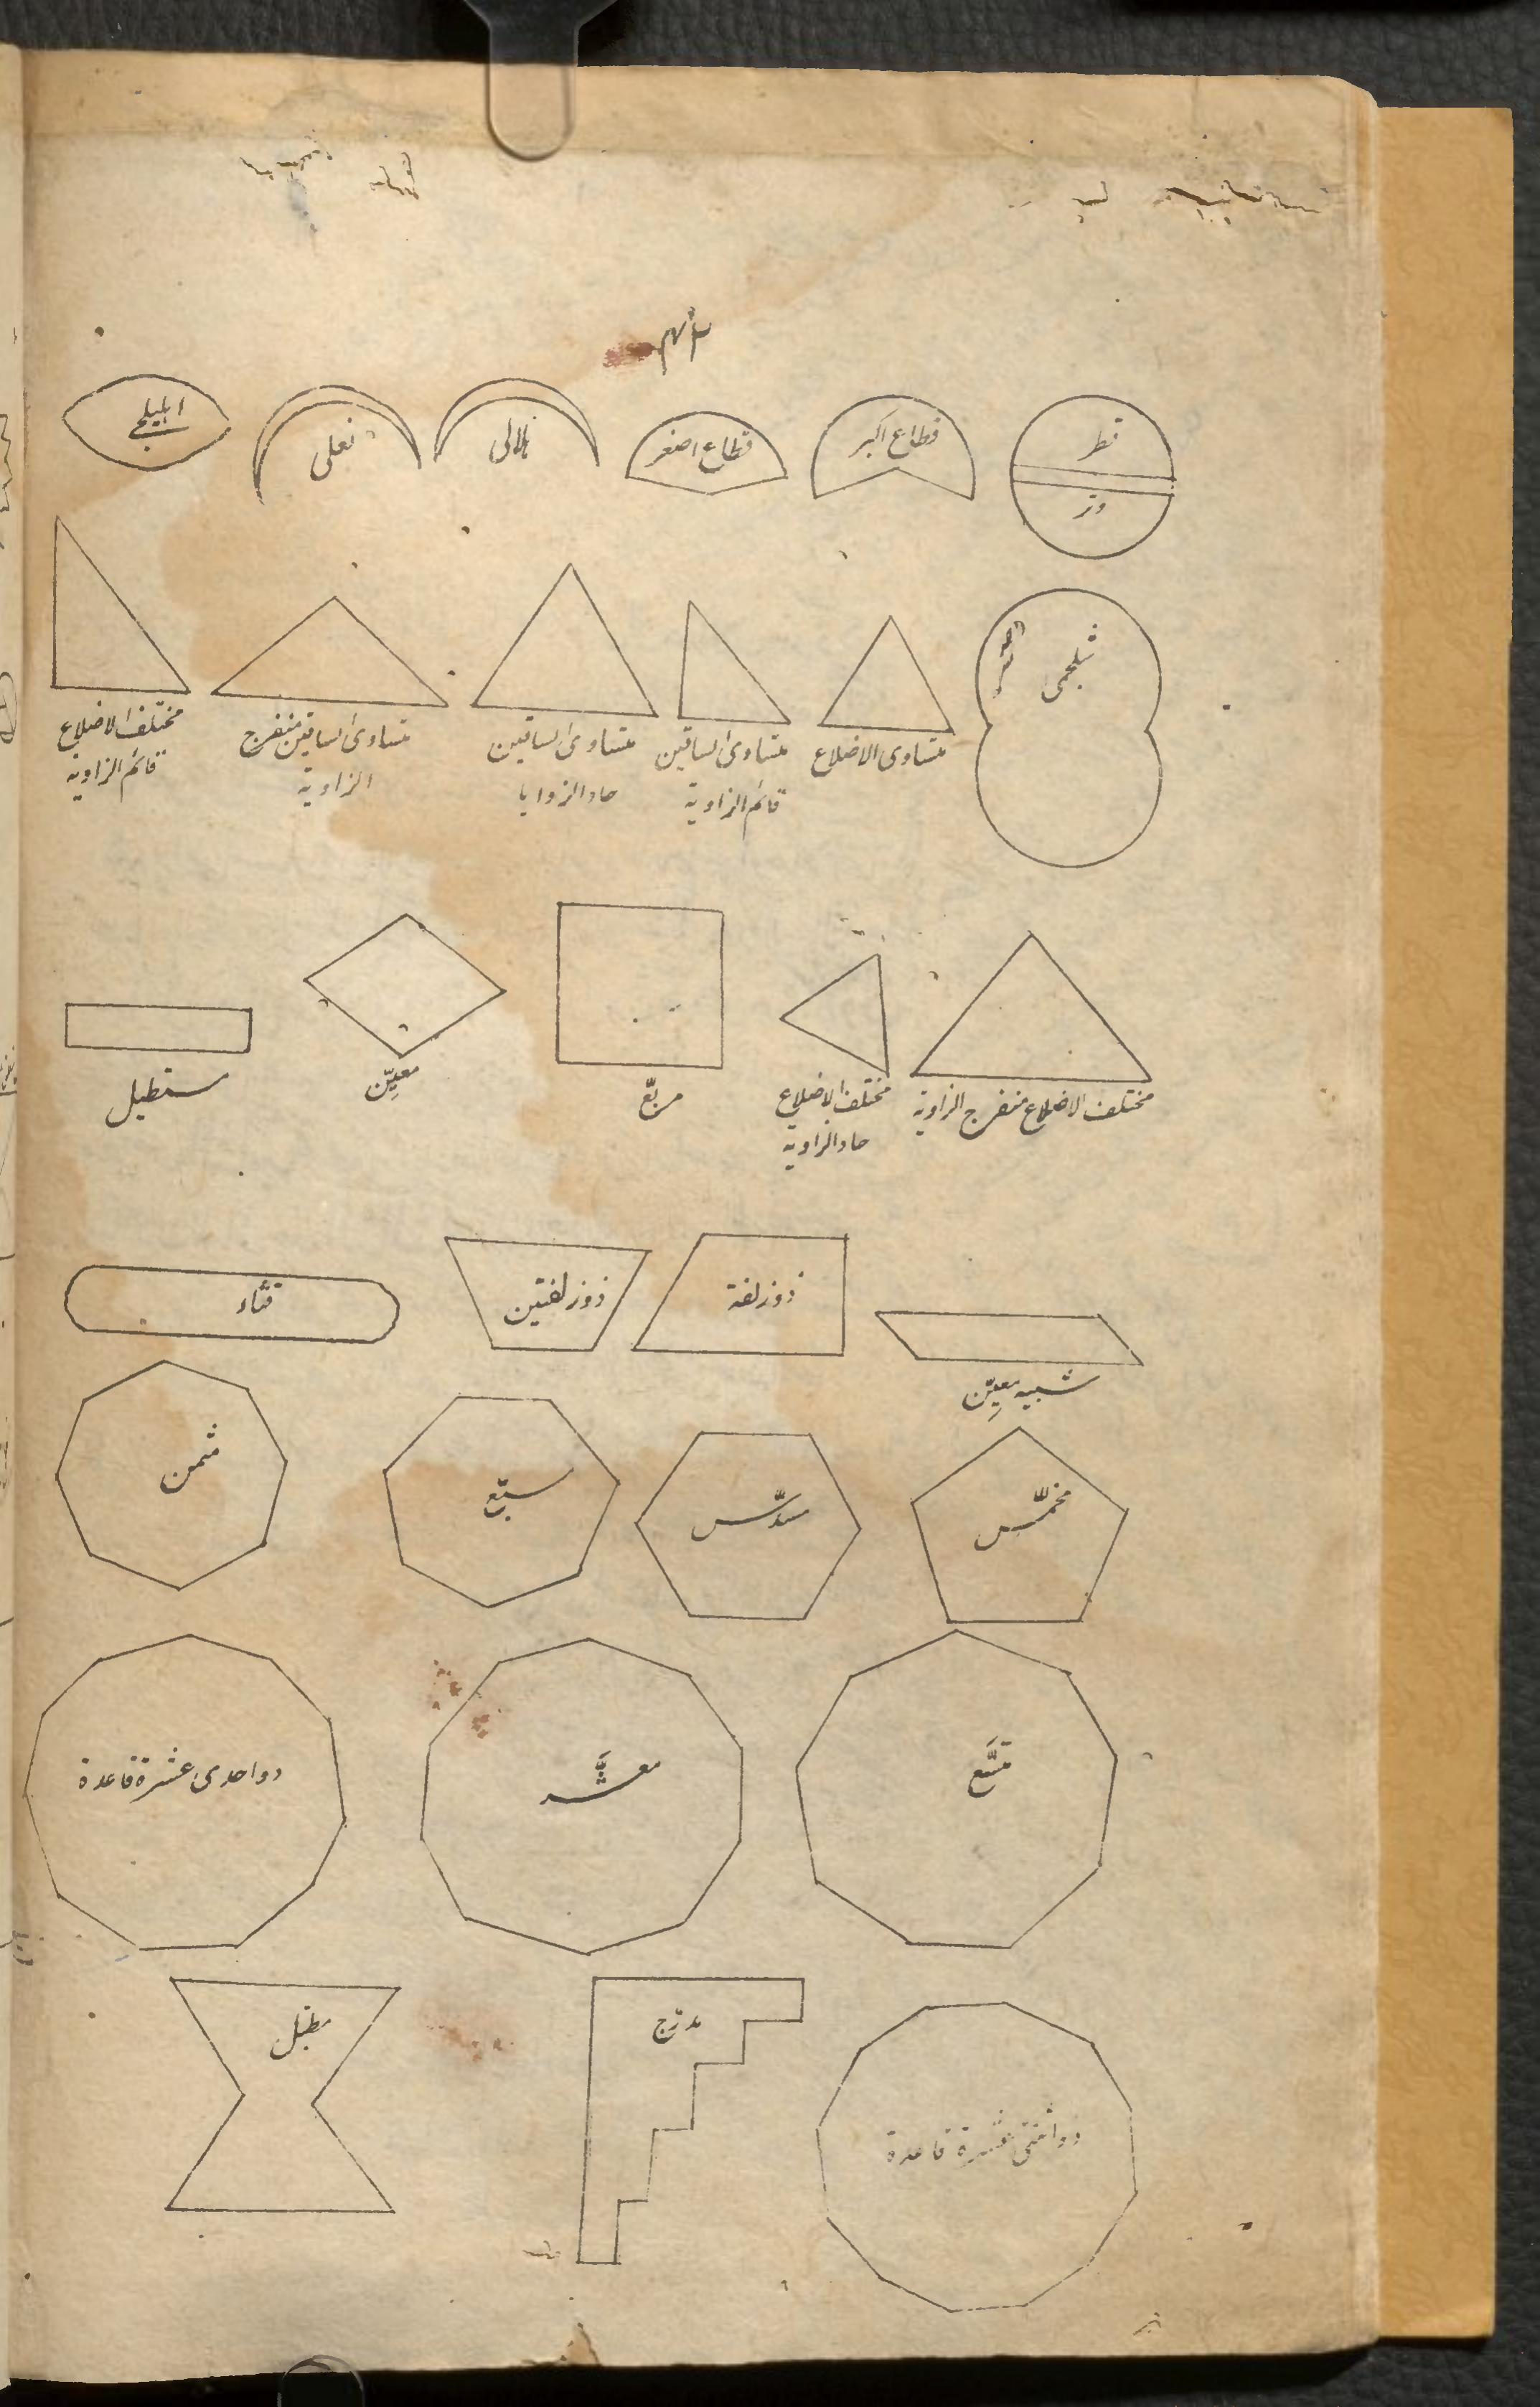 قطر
وتر
قطاع اکبر
قطاع اصغر
هلالی
نعلی
اهلیلجی
شلجمی
متساوی الاضلاع
متساوی الساقین
قائم الزاویة
متساوی الساقین
حاد الزوایا
متساوی الساقین منفرج
الزاویة
مختلف الاضلاع
قائم الزاویة
مختلف الاضلاع منفرج الزاویة
مختلف الاضلاع
حاد الزاویة
مربّع
معیّن
مستطیل
شبیه معیّن
ذوزلفة
ذوزلفتین
قثّاء
مخمّس
مسدّس
مسبّع
مثمن
متسَّع
معشَّر
ذو احدی عشرة قاعدة
ذو اثنتی عشرة قاعدة
مدرّج
مطبّل